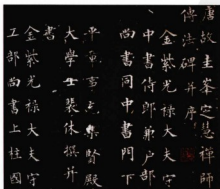 唐故圭峯定慧禪師
傳法碑并序
金紫光祿大夫守
中書侍郎兼戶部
尚書同中書門下
平章事充集賢殿
大學士裴休撰并
書
金紫光祿大夫守
工部尚書上柱國